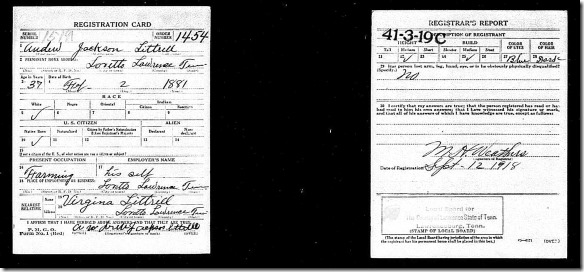 REGISTRATION CARD
SERIAL NUMBER 1519 ORDER NUMBER 1454
Andrew Jackson Littrell
PERMANENT HOME ADDRESS:
Loretto Lawrence Tenn
Age in Years Date of Birth
37 2 1881
RACE
White Negro Oriental Indian
Citizen
✓
U. S. CITIZEN ALIEN
Native Born Naturalized Declarant
✓
PRESENT OCCUPATION EMPLOYER'S NAME
Farming his self
PLACE OF EMPLOYMENT OR BUSINESS:
Loretto Lawrence Tenn
NEAREST RELATIVE Name Virgina Littrell
Address Loretto Lawrence Tenn
I AFFIRM THAT I HAVE VERIFIED ABOVE ANSWERS AND THAT THEY ARE TRUE
P. M. G. O.
Form No. 1 (Red)
REGISTRAR'S REPORT
41-3-19 C
DESCRIPTION OF REGISTRANT
HEIGHT BUILD COLOR OF EYES COLOR OF HAIR
Tall Medium Short Slender Medium Stout
✓ ✓ Blue Dark
Has person lost arm, leg, hand, eye, or is he obviously physically disqualified?
(Specify.) No
I certify that my answers are true; that the person registered has read or has had read to him his own answers; that I have witnessed his signature or mark, and that all of his answers of which I have knowledge are true, except as follows:
Date of Registration Sept. 12 1918
Local Board for
Lawrenceburg, Tenn.
(STAMP OF LOCAL BOARD)
(The stamp of the Local Board having jurisdiction of the area in which the registrant has his permanent home shall be placed in this box.)
(OVER)